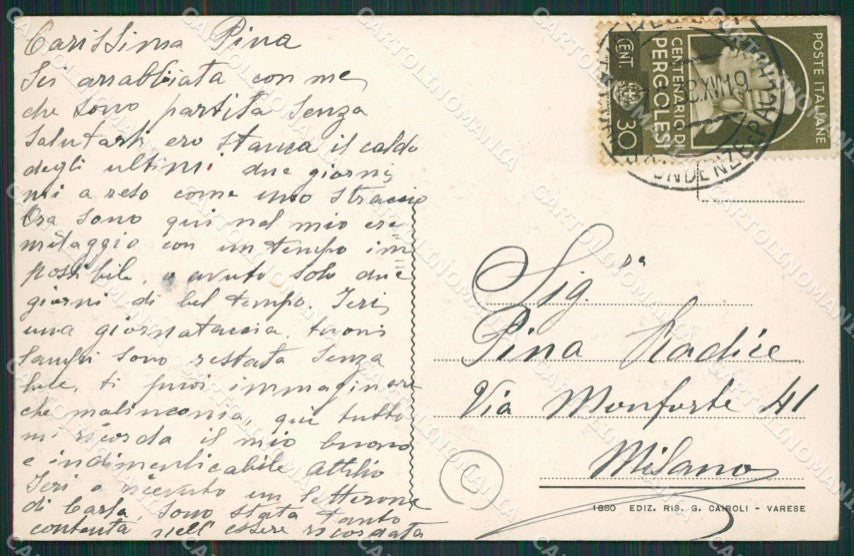 Carissima Pina
Sei arrabbiata con me
che sono partita senza
salutarti ero stanca il caldo
degli ultimi due giorni
mi a reso come uno straccio
Ora sono qui nel mio ere
mitaggio con un tempo im
possibile, o avuto solo due
giorni di bel tempo. Ieri
una giornataccia, tuoni
lampi sono restata senza
luce, ti puoi immaginare
che malinconia, qui tutto
mi ricorda il mio buono
e indimenticabile Attilio
Ieri o ricevuto un letterone
di Carla, sono stata tanto
contenta nell'essere ricordata
POSTE ITALIANE
CENTENARIO DI
PERGOLESI
CENT 30
Sig.ra
Pina Radice
Via Monforte 41
Milano
C
1880 EDIZ. RIS. G. CAIROLI - VARESE
CARTOLINOMANIA